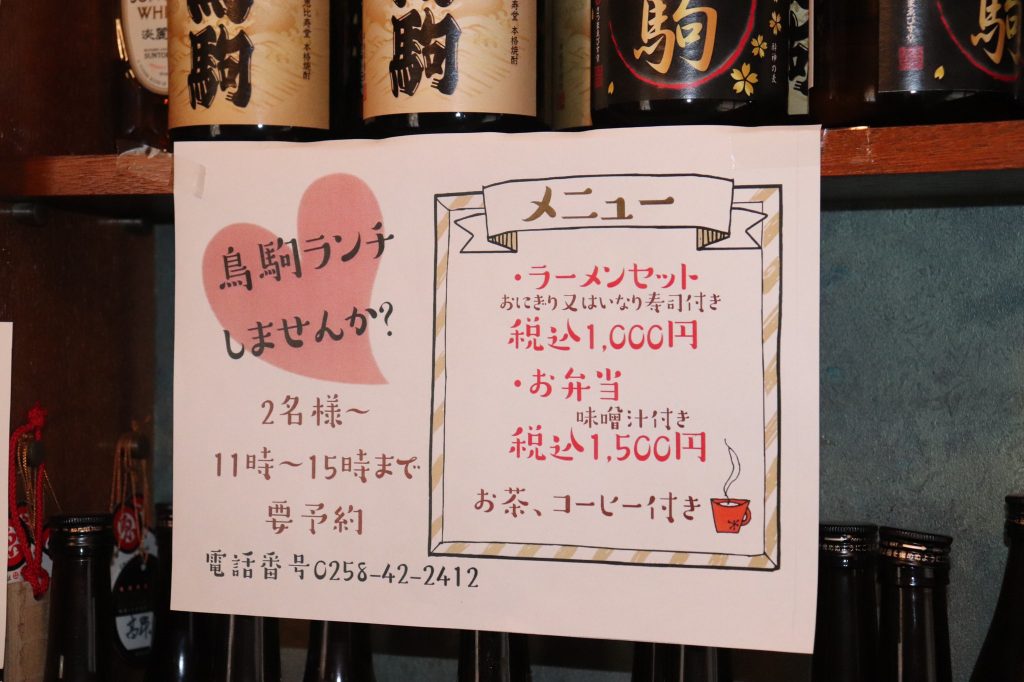 WHI
淡麗
SUNTORY
駒
恵比寿堂 本格焼酎
駒
恵比寿堂 本格焼酎
駒
鳥駒ランチ
しませんか?
2名様～
11時～15時まで
要予約
電話番号0258-42-2412
メニュー
・ラーメンセット
おにぎり又はいなり寿司付き
税込1,000円
・お弁当
味噌汁付き
税込1,500円
お茶、コーヒー付き